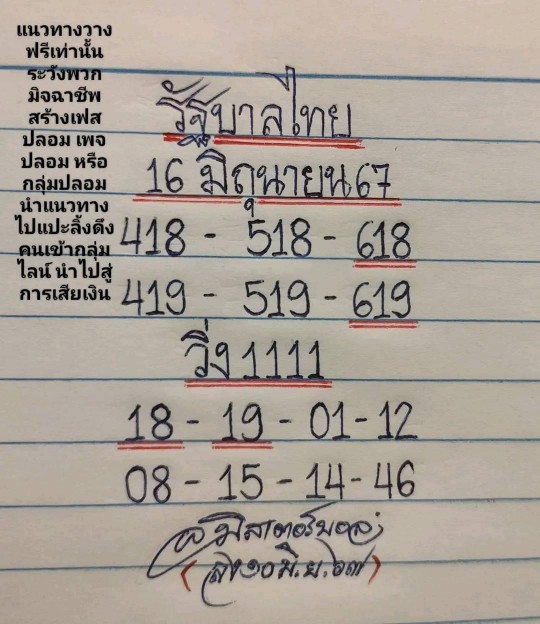 แนวทางวาง
ฟรีเท่านั้น
ระวังพวก
มิจฉาชีพ
สร้างเฟส
ปลอม เพจ
ปลอม หรือ
กลุ่มปลอม
นำแนวทาง
ไปแปะลิ้งดึง
คนเข้ากลุ่ม
ไลน์ นำไปสู่
การเสียเงิน
รัฐบาลไทย
16 มิถุนายน67
418 - 518 - 618
419 - 519 - 619
วิ่ง 1111
18 - 19 - 01 - 12
08 - 15 - 14 - 46
มิสเตอร์บอล
มิ.ย. ๖๗